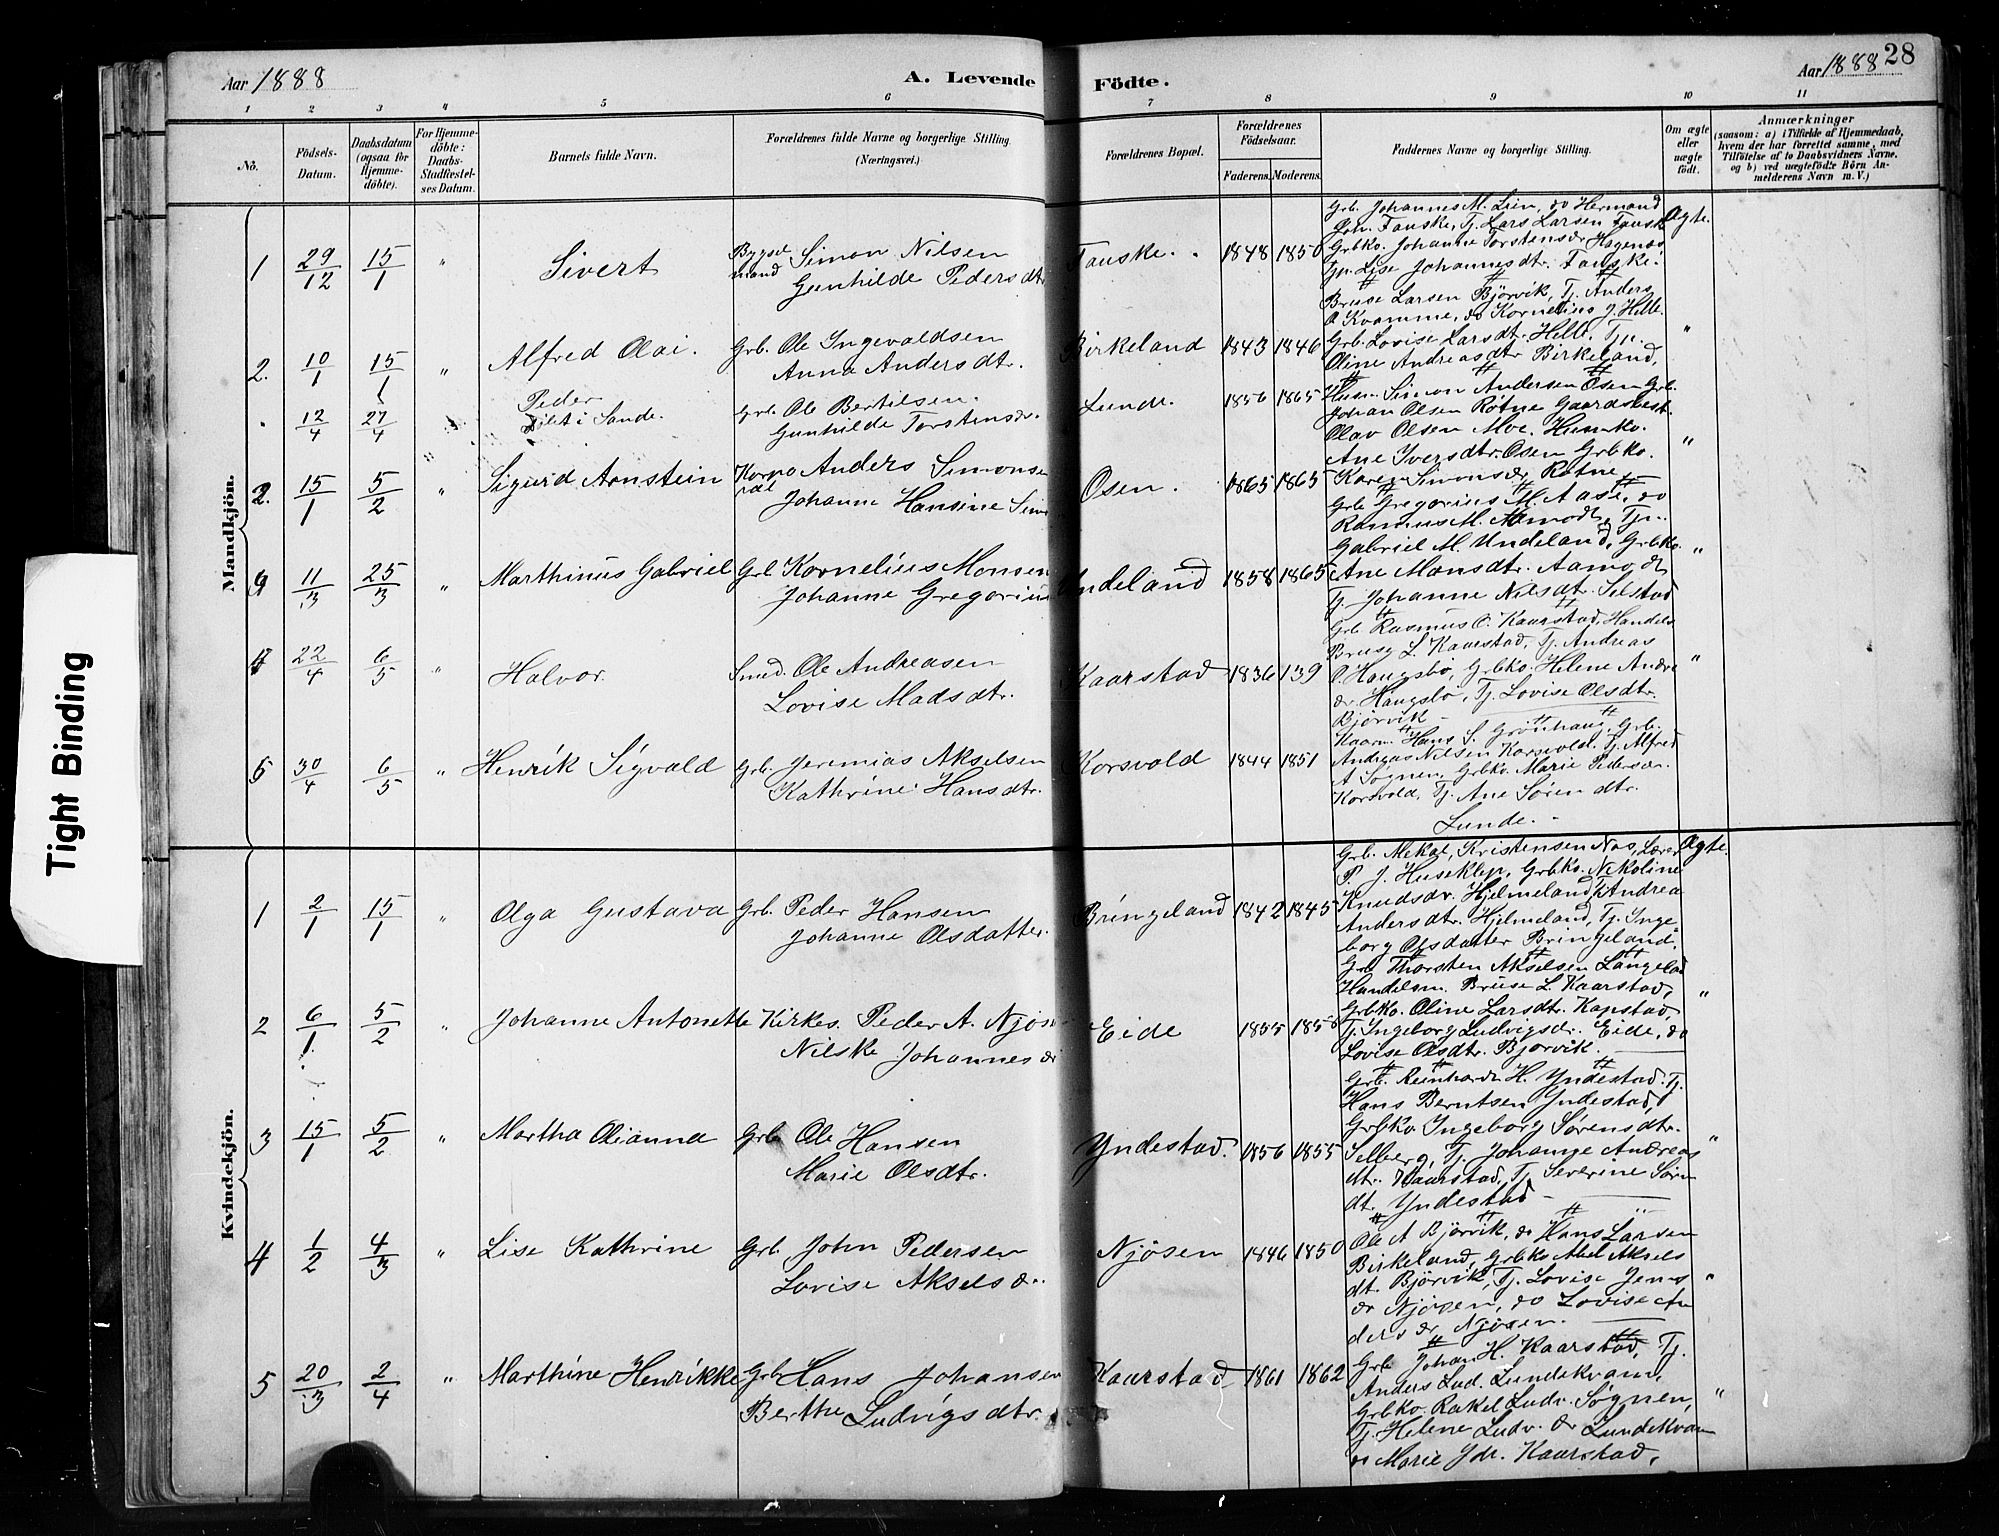 Aar 1888
A. Levende Födte.
Aar 1888 28
1 2 3 4 5 6 7 8 9 10 11
No.
Födsels-Datum.
Daabsdatum (ogsaa för Hjemme-döbte).
For Hjemme-döbte: Daabs-Stadfæstel-ses Datum.
Barnets fulde Navn.
Forældrenes fulde Navne og borgerlige Stilling. (Næringsvei.)
Forældrenes Bopæl.
Forældrenes Födselsaar.
Faderens. Moderens.
Faddernes Navne og borgerlige Stilling.
Om ægte eller uægte födt.
Anmærkninger
(saasom: a) i Tilfælde af Hjemmedaab, hvem der har forrettet samme, med Tilföielse af to Daabsvidners Navne. og b) ved uægtefödte Börn An-melderens Navn m. V.)
Mandkjön.
1 29/12 15/1 " Sivert Bygselmand Simon Nilsen Gunhilde Pedersdtr Fauske. 1848 1850 Ægte.
Grb. Johannes M. Lien, do Hermand
Joh. Fauske, Tj. Lars Larsen Fauske
Grbko. Johanne Torstensdr Hagenæs
Tjp. Lise Johannesdtr. Fauske.
2. 10/1 15/1 " Alfred Olai. Grb. Ole Ingevaldsen Anna Andersdtr. Birkeland 1843 1846 "
Bruse Larsen Björvik, Tj. Anders
O Kvamme, do Kornelius J. Hille.
Grb. Lovise Larsdtr Hille, Tjp.
Oline Andreasdtr Birkeland,
12/4 27/4 " Peder i Sande. Grb. Ole Bertilsen. Gunhilde Torstensdr. Lunde. 1856 1865 "
Husm. Simon Andersen Osen Grb.
Johan Olsen Rötne Gaardsbest.
Olav Olsen Moe. Husmko.
Ane Iversdtr Osen Grbko.
Karen Simonsdr Rötne
2. 15/1 5/2 " Sigurd Arnstein Anders Simonsen Johanne Hansine Sim Osen. 1865 1865
Grb Gregorius M. Aase, do
Rasmus M. Aamodt, Tjp.
Gabriel M. Undeland, Grbko.
Ane Monsdtr. Aamo, do
Tj. Johanne Nilsdtr. Selstad
9 11/3 25/3 " Marthinus Gabriel Grb Kornelius Monsen Johanne Gregorius Undeland 1858 1865 "
Grb Rasmus O. Kaarstad, Handels
Bruse L Kaarstad, Tj. Andreas
O. Haugsbö, Grbko. Helene Andre
dr Haugsbö, Tj. Lovise Olsdtr.
Björvik
4 22/4 6/5 " Halvor. Smed. Ole Andreasen Lovise Madsdtr. Kaarstad 1836 139 "
5 30/4 6/5 " Henrik Sigvald Grb. Jeremias Akselsen Kathrine Hansdtr. Korsvold 1844 1851
Hans S. Grönhaug, Grb.
Andreas Nilsen Korsvold. Tj. Alfred
A Sögnen, Grbko. Marie Pedersdr.
Korsvold, Tj. Ane Sörendtr.
Lunde.
Kvindekjön.
1 2/1 15/1 " Olga Gustava Grb. Peder Hansen Johanne Olsdatter. Bringeland 1842 1845 Ægte.
Grb. Mekal, Kristensen Nos, Lærer
P J. Huseklep, Grbko. Nikoline
Knudsdr. Hjelmeland, Tj Andrea
Andersdtr. Hjelmeland, Tj. Inge
borg Olsdatter Bringeland.
2 6/1 5/2 " Johanne Antonette Kirkes. Peder A. Njös Nilske Johannesdr Eide 1855 185 "
Grb Thorsten Akselsen Langelad
Handelsm. Bruse L. Kaarstad,
Grbko. Oline Larsdtr. Kapstad,
Tj. Ingeborg Ludvigsdr. Eide, do
Lovise Olsdtr. Bjorvik.
3 15/1 5/2 " Martha Olianna Grb Ole Hansen Marie Olsdtr. Yndestad. 1856 1855 "
Grb. Reinhardt H. Yndestad. Tj.
Hans Berntsen Yndestad,
Grbko Ingeborg Sörensdtr.
Selberg, Tj. Johanne Andreas
dtr. Kaarstad, Tj Severine Sörn
dt. Yndestad
4 1/2 4/3 " Lise Kathrine Grb. John Pedersen Lovise Akselsdr. Njösen 1846 1850 "
Ole A Björvik, do Hans Larsen
Birkeland, Grbko Abel Aksels
dt. Björvik, Tj. Lovise Jens
dr Njösen, do Lovise An
dersdr Njösen.
5 20/3 2/4 " Marthine Henrikke Grb Hans Johansen Berthe Ludvigsdtr. Kaarstad 1861 1862 "
Grb Johan H. Kaarstad, Tj.
Anders Lud. Lundekvam,
Grbko. Rakel Ludv. Sögnen,
Tj. Helene Ludv. dr Lundekvam
do Marie Kaarstad.
Tight Binding